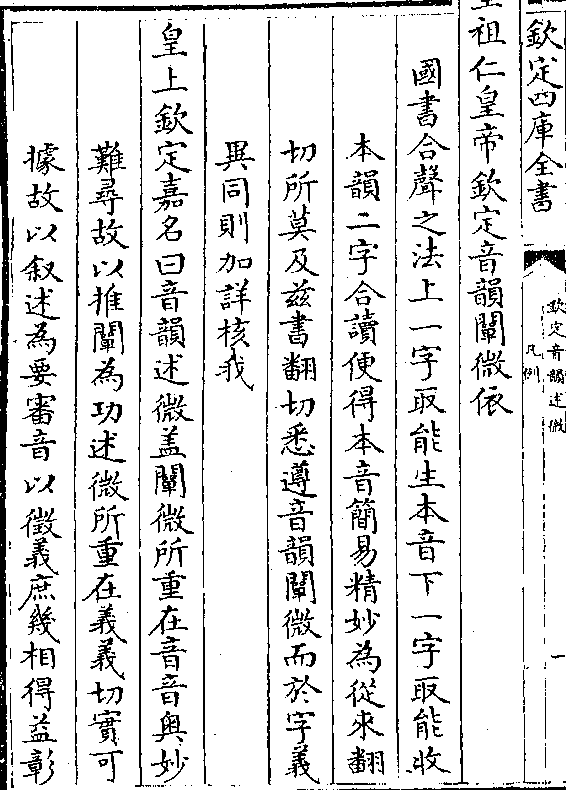 欽定四庫全書
欽定音韻述微
凡例
一
聖祖仁皇帝欽定音韻闡微依
國書合聲之法上一字取能生本音下一字取能收
本韻二字合讀便得本音簡易精妙為從來翻
切所莫及茲書翻切悉遵音韻闡微而於字義
異同則加詳核我
皇上欽定嘉名曰音韻述微蓋闡微所重在音音奧妙
難尋故以推闡為功述微所重在義義切實可
據故以叙述為要審音以徵義庶幾相得益彰